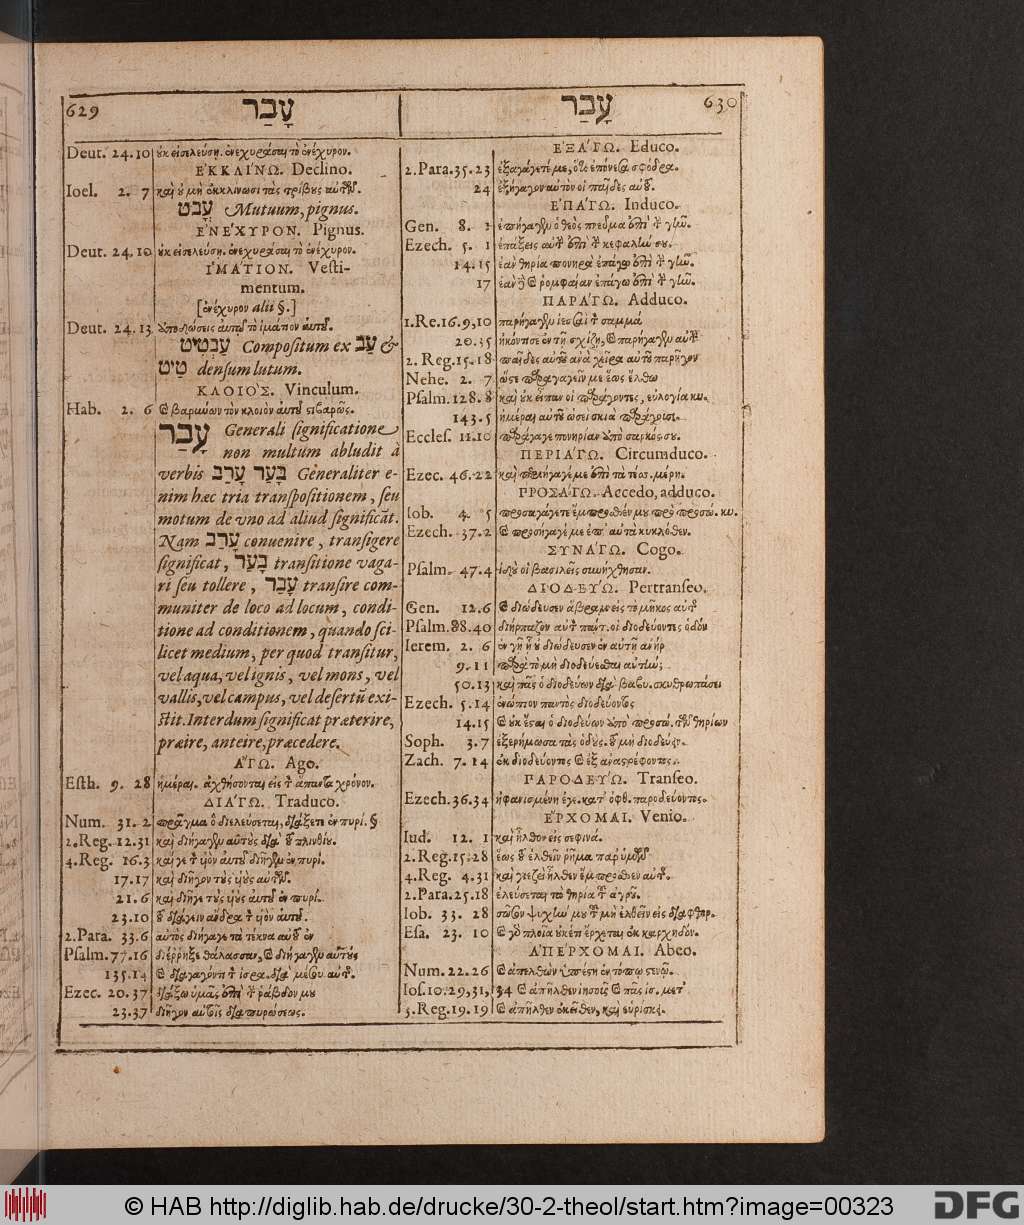 629 עָבַר
Deut. 24.10 ὐκ εἰσελεύση. ἐνεχυράσαι τὸ ἐνέχυρον.
ἘΚΚΛΙΝΩ. Declino.
Ioel. 2. 7 καὶ ὐ μὴ ἐκκλινωσι τὰς τρίβυς αὐτῶν.
עֲבֹט Mutuum, pignus.
ἘΝΕΧΥΡΟΝ. Pignus.
Deut. 24.10 ὐκ εἰσελεύση. ἐνεχυράσαι τὸ ἐνέχυρον.
ἹΜΑΤΙΟΝ. Vesti-
mentum.
[ἐνέχυρον alii §.]
Deut. 24.13 ἀποδώσεις αὐτῷ τὸ ἱμάτιον αὐτῦ.
עַבְטִיט Compositum ex עַב &
טִיט densum lutum.
ΚΛΟΙΟΣ. Vinculum.
Hab. 2. 6 καὶ βαρύνων τὸν κλοιὸν αὐτῦ στιβαρῶς.
עָבַר Generali significatione
non multum abludit à
verbis עָרַב בָּעַר Generaliter e-
nim hæc tria transpositionem, seu
motum de uno ad aliud significāt.
Nam עָרַב conuenire, transigere
significat, בָּעַר transitione vaga-
ri seu tollere, עָבַר transire com-
muniter de loco ad locum, condi-
tione ad conditionem, quando sci-
licet medium, per quod transitur,
vel aqua, vel ignis, vel mons, vel
vallis, vel campus, vel desertū exi-
stit. Interdum significat præterire,
præire, anteire, præcedere.
ἌΓΩ. Ago.
Esth. 9. 28 ἡμέραι. ἀχθήσονται εἰς τὸν ἅπαντα χρόνον.
ΔΙΑΓΩ. Traduco.
Num. 31. 2 πρᾶγμα ὃ διελεύσεται, διάξετε ἐν πυρί. §
2. Reg. 12.31 καὶ διήγαγεν αὐτὺς διὰ τῦ πλινθίυ.
4. Reg. 16.3 καίγε τὸν υἱὸν αὐτῦ διῆγεν ἐν πυρί.
17.17 καὶ διῆγον τὺς υἱὺς αὐτῶν.
21.6 καὶ διῆγε τὺς υἱὺς αὐτῦ ἐν πυρί.
23.10 τῦ διάγειν ἄνδρα τὸν υἱὸν αὐτῦ.
2. Para. 33.6 αὐτὸς διήγαγε τὰ τέκνα αὐτῦ ἐν
Psalm. 77.16 διέῤῥηξε θάλασσαν, καὶ διήγαγεν αὐτύς
135.14 καὶ διαγαγόντι τὸν ἰσρα. διὰ μέσυ αὐτῆς.
Ezec. 20.37 διάξω ὑμᾶς ὑπὸ τὴν ῥάβδον μυ
23.37 διῆγον αὐτοῖς διὰ πυρώσεως.
עָבַר 630
ἘΞΑΓΩ. Educo.
2. Para. 35.23 ἐξαγάγετέ με, ὅτι ἐπόνεσα σφόδρα.
24 ἐξήγαγον αὐτὸν οἱ παῖδες αὐτῦ.
ἘΠΑΓΩ. Induco.
Gen. 8. 1 ἐπήγαγεν ὁ θεὸς πνεῦμα ἐπὶ τὴν γῆν.
Ezech. 5. 1 ἐπάξεις αὐτὴν ἐπὶ τὴν κεφαλήν συ.
14.15 ἐὰν θηρία πονηρὰ ἐπάγω ἐπὶ τὴν γῆν.
17 ἐὰν δὲ καὶ ῥομφαίαν ἐπάγω ἐπὶ τὴν γῆν.
ΠΑΡΑΓΩ. Adduco.
1. Re. 16.9,10 παρήγαγεν ἰεσσαὶ τὸν σαμμά
20.35 ἠκόντισε ἐν τῇ σχίζῃ, καὶ παρήγαγεν αὐτὴν
2. Reg. 15.18 παῖδες αὐτῦ ἀνὰ χεῖρα αὐτῦ παρῆγον
Nehe. 2. 7 ὥστε παραγαγεῖν με ἕως ἔλθω
Psalm. 128.8 καὶ ὐκ εἶπαν οἱ παράγοντες, εὐλογία κυ.
143.5 ἡμέραι αὐτῦ ὡσεὶ σκιὰ παράγυσι.
Eccles. 11.10 παράγαγε πονηρίαν ἀπὸ σαρκός συ.
ΠΕΡΙΑΓΩ. Circumduco.
Ezec. 46.22 καὶ περιήγαγέ με ἐπὶ τὰ τέσσ. μέρη.
ΠΡΟΣΑΓΩ. Accedo, adduco.
Iob. 4. 5
Ezech. 37.2 καὶ προσήγαγέ με ἐπ' αὐτὰ κυκλόθεν.
ΣΥΝΑΓΩ. Cogo.
Psalm. 47.4 ἰδὺ οἱ βασιλεῖς συνήχθησαν.
ΔΙΟΔΕΥΩ. Pertranseo.
Gen. 12.6 καὶ διώδευσεν ἄβραμ εἰς τὸ μῆκος αὐτῆς
Psalm. 88.40 διήρπαζον αὐτὸν πάντ. οἱ διοδεύοντες ὁδόν
Ierem. 2. 6 ἐν γῇ ᾗ ὐ διώδευσεν ἐν αὐτῇ ἀνήρ
9.11 παρὰ τὸ μὴ διοδεύεσθαι αὐτήν;
50.13 καὶ πᾶς ὁ διοδεύων διὰ βαβυ. σκυθρωπάσει
Ezech. 5.14 ἐνώπιον παντὸς διοδεύοντος
14.15 καὶ ὐκ ἔσται ὁ διοδεύων ἀπὸ προσώ. τῶν θηρίων
Soph. 3.7 ἐξερήμωσα τὰς ὁδὺς. τῦ μὴ διοδεύει.
Zach. 7.14 ἐκ διοδεύοντος καὶ ἐξ ἀναστρέφοντος.
ΠΑΡΟΔΕΥΩ. Transeo.
Ezech. 36.34 ἠφανισμένη ἐγε. κατ' ὀφθ. παροδεύοντος.
ἜΡΧΟΜΑΙ. Venio.
Iud. 12. 1 καὶ ἦλθον εἰς σεφινά.
2. Reg. 15.28 ἕως τῦ ἐλθεῖν ῥῆμα παρ' ὑμῶν
4. Reg. 4.31 καὶ γιεζεὶ ἦλθεν ἔμπροσθεν αὐτῆς.
2. Para. 25.18 ἐλεύσεται τὰ θηρία τῦ ἀγρῦ.
Iob. 33. 28 σῶσον ψυχήν μυ τῦ μὴ ἐλθεῖν εἰς διαφθορ.
Esa. 23. 10 καὶ γὰρ πλοῖα ὐκέτι ἔρχεται ἐκ καρχηδον.
ἈΠΕΡΧΟΜΑΙ. Abeo.
Num. 22.26 καὶ ἀπελθὼν ὑπέστη ἐν τόπῳ στενῷ.
Ios. 10.29,31, 34 καὶ ἀπῆλθεν ἰησοῦς καὶ πᾶς ἰσ. μετ'
3. Reg. 19.19 καὶ ἀπῆλθεν ἐκεῖθεν, καὶ εὑρίσκει.
© HAB http://diglib.hab.de/drucke/30-2-theol/start.htm?image=00323
DFG